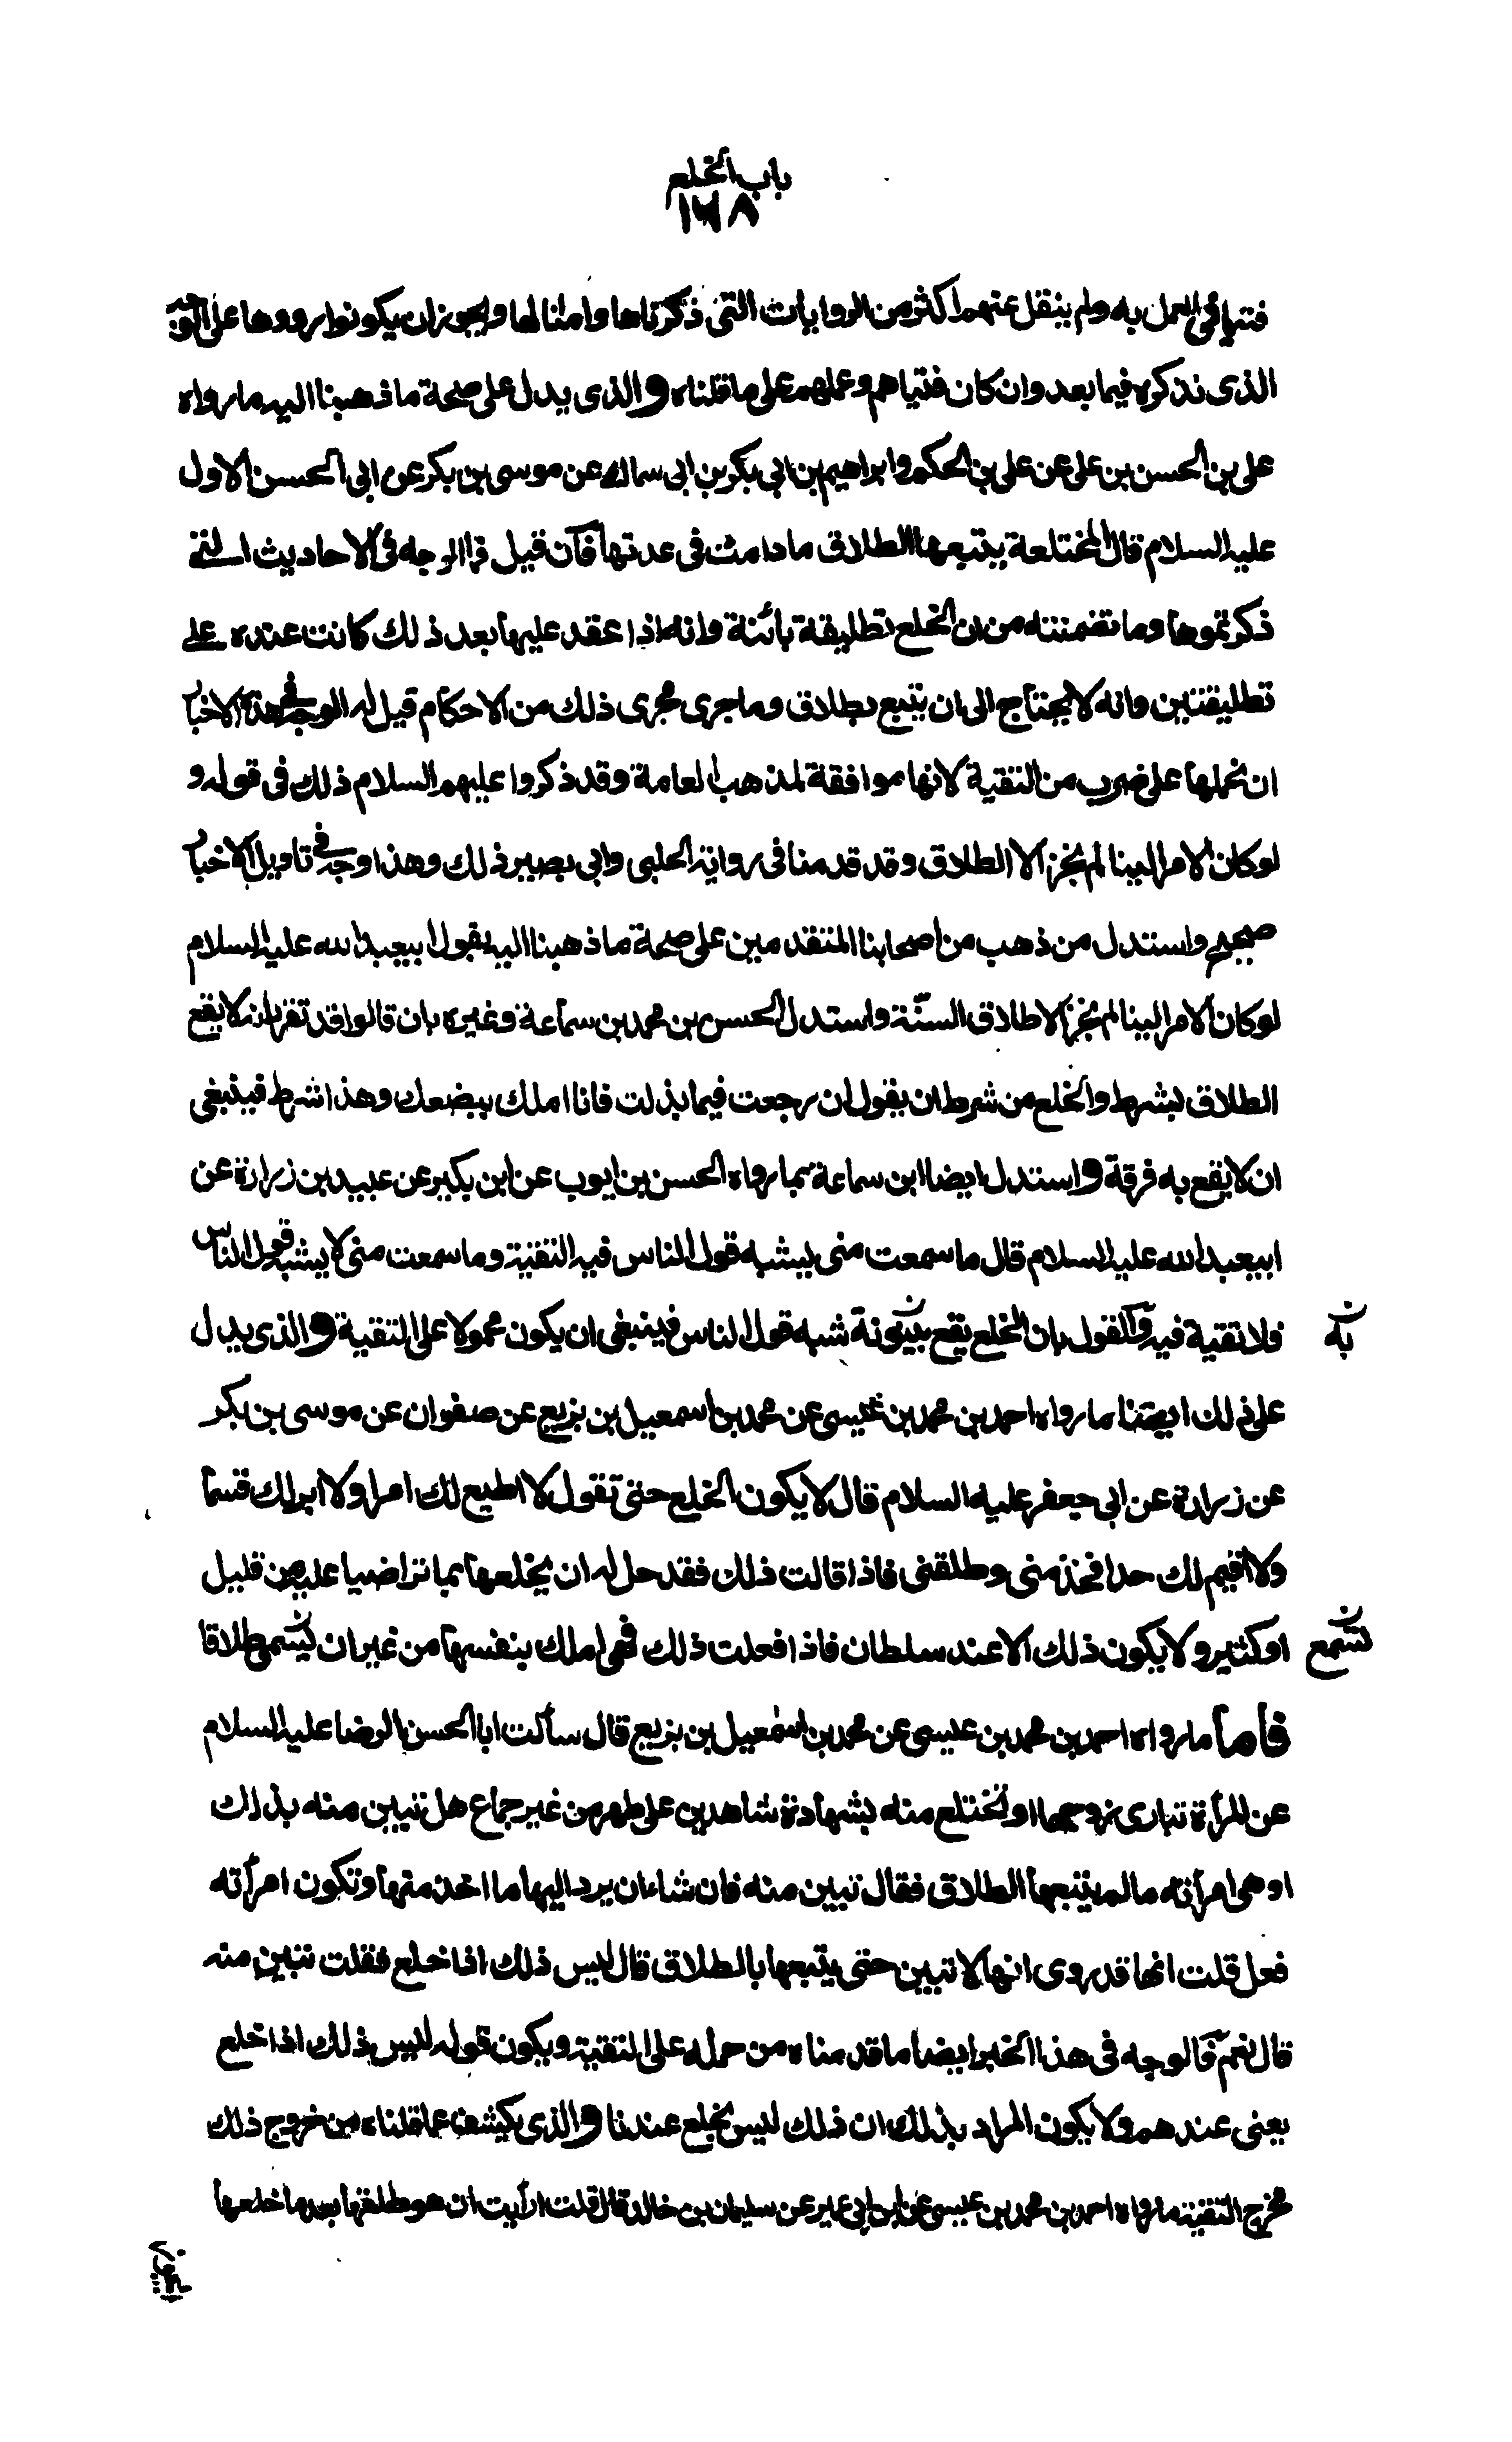 باب الخلع
١٦٨
فتيا في العمل به ولم ينقل عنهم اكثر من الروايات التي ذكرناها وامثالها ويجوز ان يكونوا رووها على الوجه
الذى نذكره فيما بعد وان كان فتياهم وعملهم على ما قلناه والذى يدل على صحة ما ذهبنا اليه ما رواه
على بن الحسن بن على عن على بن الحكم وابراهيم بن ابي بكر بن ابى سماك عن موسى بن بكر عن ابى الحسن الاول
عليه السلام قال المختلعة يتبعها الطلاق ما دامت في عدتها فآن قيل فما الوجه فى الاحاديث التي
ذكرتموها وما تضمنته من ان الخلع تطليقة بائنة وانه اذا عقد عليها بعد ذلك كانت عنده على
تطليقتين وانه لا يحتاج الى ان يتبع بطلاق وما جرى مجرى ذلك من الاحكام قيل له الوجه فى هذه الاخبار
ان نحملها على ضرب من التقية لانها موافقة لمذهب العامة وقد ذكروا عليهم السلام ذلك فى قولهم و
لو كان الامر الينا لم نجز الا الطلاق وقد قدمنا فى رواية الحلبى وابى بصير ذلك وهذا وجه في تاويل الاخبار
صحيح واستدل من ذهب من اصحابنا المتقدمين على صحة ما ذهبنا اليه بقول ابيعبد الله عليه السلام
لو كان الامر الينا لم نجز الا طلاق السنّة واستدل الحسن بن محمد بن سماعة وغيره بان قالوا قد تقرر انه لا يقع
الطلاق بشرط والخلع من شرطه ان يقول ان رجعت فيما بذلت فانا املك ببضعك وهذا شرط فينبغى
ان لا يقع به فرقة واستدل ايضا ابن سماعة بما رواه الحسن بن ايوب عن ابن بكير عن عبيد بن زرارة عن
ابيعبد الله عليه السلام قال ما سمعت منى يشبه قول الناس فيه التقية وما سمعت منى لا يشبه قول الناس
فلا تقية فيه والقول بان الخلع يقع بينونة شبه قول الناس فينبغى ان يكون محمولا على التقية والذى يدل
به ن
على ذلك ايضا ما رواه احمد بن محمد بن عيسى عن محمد بن اسمعيل بن بزيع عن صفوان عن موسى بن بكر
عن زرارة عن ابى جعفر عليه السلام قال لا يكون الخلع حتى تقول لا اطيع لك امرا ولا ابر لك قسما
ولا اقيم لك حدا فخذ منى وطلقنى فاذا قالت ذلك فقد حل له ان يخلعها بما تراضيا عليه من قليل
او كثير ولا يكون ذلك الا عند سلطان فاذا فعلت ذلك فهى املك بنفسها من غير ان يسمى طلاقا
تسمع ن
فأما ما رواه احمد بن محمد بن عيسى عن محمد بن اسمعيل بن بزيع قال سألت ابا الحسن الرضا عليه السلام
عن المرأة تبارى زوجها او تختلع منه بشهادة شاهدين على طهر من غير جماع هل تبين منه بذلك
او هى امرأته ما لم يتبعها الطلاق فقال تبين منه فان شاء ان يرد اليها ما اخذ منها وتكون امرأته
فعل قلت انها قد روى انها لا تبين حتى يتبعها بالطلاق قال ليس ذلك اذا خلع فقلت تبين منه
قال نعم فالوجه فى هذا الخبر ايضا ما قدمناه من حمله على التقية ويكون قوله ليس ذلك اذا خلع
يعنى عندهم ولا يكون المراد بذلك ان ذلك ليس بخلع عندنا والذى يكشف عما قلناه من خروج ذلك
مخرج التقية ما رواه احمد بن محمد بن عيسى عن ابن ابى عمير عن سليمان بن خالد قال قلت ارأيت ان هو طلقها بعد ما خلعها